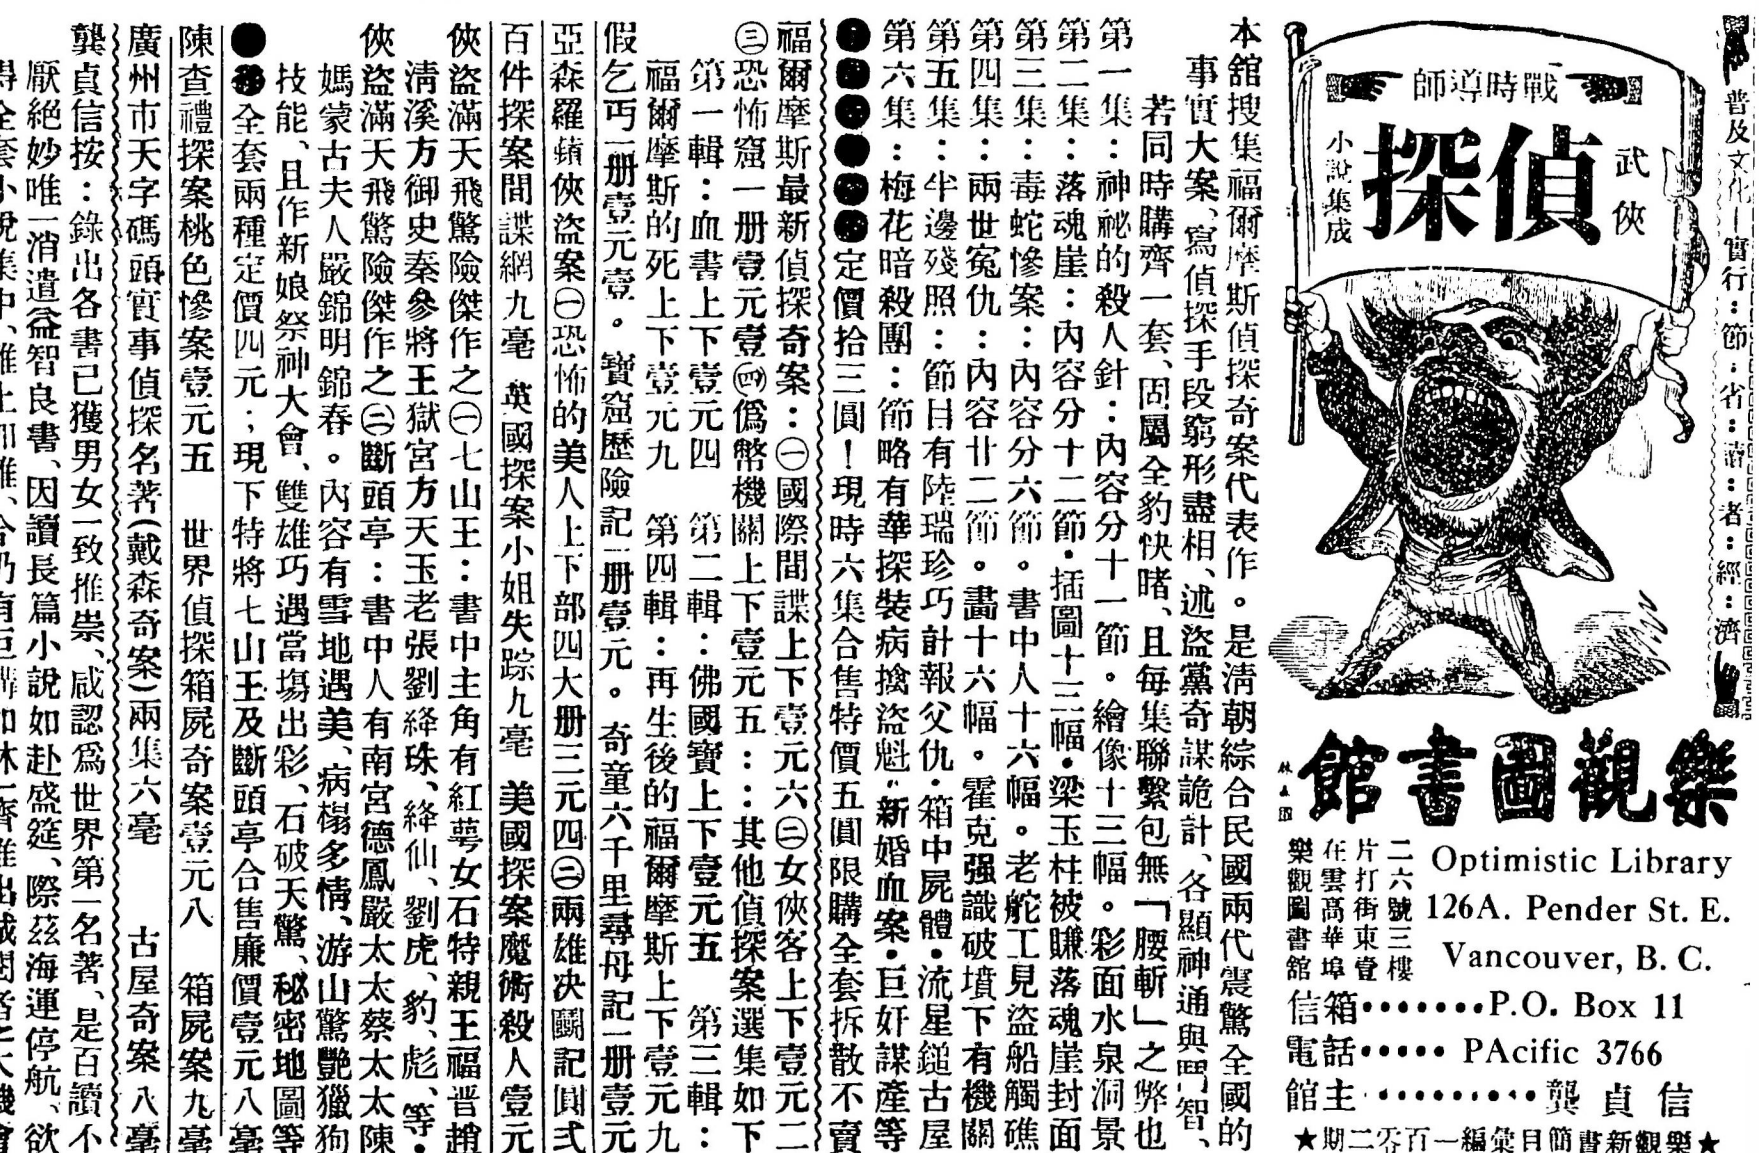 普及文化—實行:節:省:讀:者:經:濟
戰時導師
武俠
偵探
小說集成
樂觀圖書館
Optimistic Library
126A. Pender St. E.
Vancouver, B. C.
二六號三樓
片打街東壹
在雲高華埠
樂觀圖書館
信箱•••••••P.O. Box 11
電話••••• PAcific 3766
館主••••••••••龔貞信
★樂觀新書簡目彙編一百零二期★
本舘搜集福爾摩斯偵探奇案代表作。是淸朝綜合民國兩代震驚全國的
事實大案、寫偵探手段窮形盡相、述盜黨奇謀詭計、各顯神通與鬥智、
若同時購齊一套、固屬全豹快睹、且每集聯繫包無「腰斬」之弊也
第一集:神祕的殺人針:內容分十一節。繪像十三幅。彩面水泉洞景
第二集:落魂崖:內容分十二節•插圖十三幅•梁玉柱被賺落魂崖封面
第三集:毒蛇慘案:內容分六節。書中人十六幅。老舵工見盜船觸礁
第四集:兩世寃仇:內容廿二節。畵十六幅。霍克强識破墳下有機關
第五集:半邊殘照:節目有陸瑞珍巧計報父仇•箱中屍體•流星鎚古屋
第六集:梅花暗殺團:節略有華探裝病擒盜魁•新婚血案•巨奸謀產等
定價拾三圓!現時六集合售特價五圓限購全套拆散不賣
福爾摩斯最新偵探奇案:㊀國際間諜上下壹元六㊁女俠客上下壹元二
㊂恐怖窟一册壹元壹㊃僞幣機關上下壹元五::其他偵探案選集如下
第一輯:血書上下壹元四 第二輯:佛國寶上下壹元五 第三輯:
福爾摩斯的死上下壹元九 第四輯:再生後的福爾摩斯上下壹元九
假乞丐一册壹元壹。寶窟歷險記一册壹元。奇童六千里尋母記一册壹元
亞森羅蘋俠盜案㊀恐怖的美人上下部四大册三元四㊁兩雄决鬭記圓弍
百件探案間諜網九毫 英國探案小姐失踪九毫 美國探案魔術殺人壹元
俠盜滿天飛驚險傑作之㊀七山王:書中主角有紅蕚女石特親王福晋趙
淸溪方御史秦參將王獄宮方天玉老張劉絳珠、絳仙、劉虎、豹、彪、等•
俠盜滿天飛驚險傑作之㊁斷頭亭:書中人有南宮德鳳嚴太太蔡太太陳
媽蒙古夫人嚴錦明錦春。內容有雪地遇美、病榻多情、游山驚艷獵狗
技能、且作新娘祭神大會、雙雄巧遇當塲出彩、石破天驚、秘密地圖等
全套兩種定價四元;現下特將七山王及斷頭亭合售廉價壹元八毫
陳查禮探案桃色慘案壹元五 世界偵探箱屍奇案壹元八 箱屍案九毫
廣州市天字碼頭實事偵探名著(戴森奇案)兩集六毫 古屋奇案八毫
龔貞信按:錄出各書已獲男女一致推崇、咸認爲世界第一名著、是百讀不
厭絕妙唯一消遣益智良書、因讀長篇小說如赴盛筵、際茲海運停航、欲